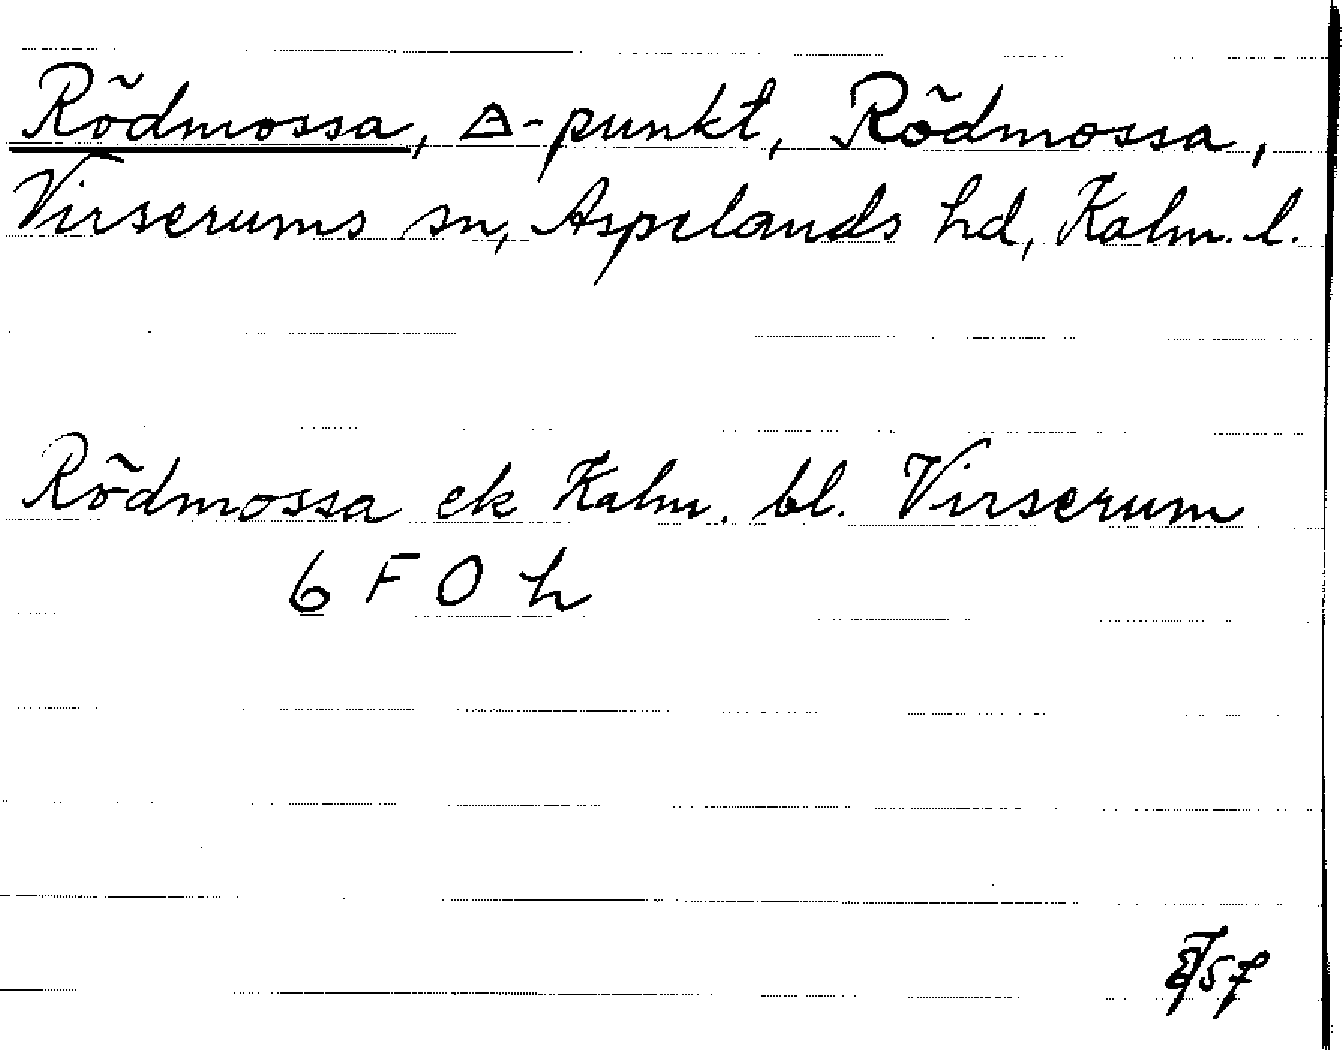 Rödmossa, △-punkt, Rödmossa,
Virserums sn, Aspelands hd, Kalm. l.
Rödmossa ek Kalm. bl. Virserum
6 F 0 h